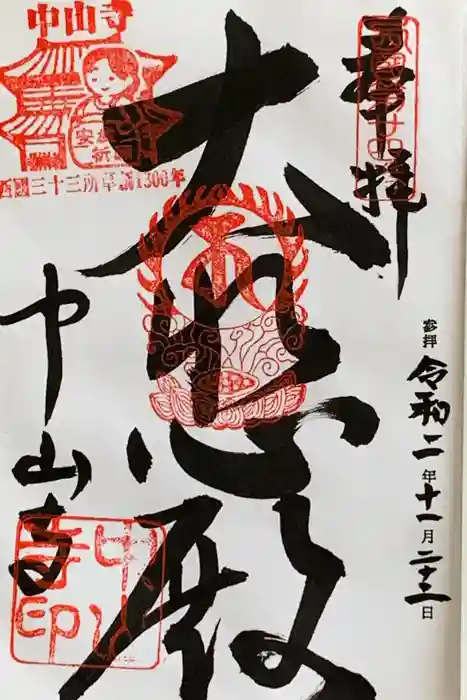 奉拝
参拝 令和二年十一月二十三日
大悲殿
中山寺
中山寺
西國三十三所草創1300年
中山寺印